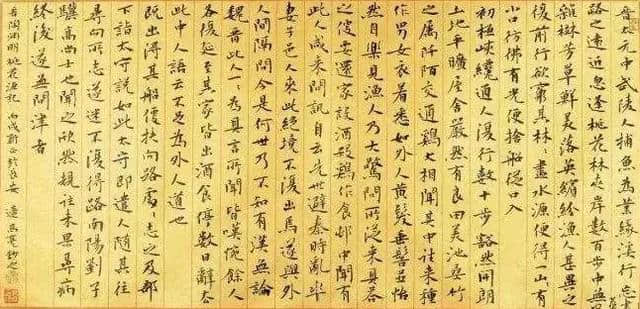 晉太元中武陵人捕魚為業緣溪行忘
路之遠近忽逢桃花林夾岸數百步中無
雜樹芳草鮮美落英繽紛漁人甚異之
復前行欲窮其林〻盡水源便得一山〻有
小口仿佛有光便捨船從口入
初極狹纔通人復行數十步豁然開朗
土地平曠屋舍儼然有良田美池桑竹
之屬阡陌交通鷄犬相聞其中往來種
作男女衣著悉如外人黃髮垂髫並怡
然自樂見漁人乃大驚問所從來具答
之便要還家設酒殺鷄作食邨中聞有
此人咸來問訊自云先世避秦時亂率
妻子邑人來此絕境不復出焉遂與外
人間隔問今是何世乃不知有漢無論
魏晉此人一〻為具言所聞皆歎惋餘人
各復延至其家皆出酒食停數日辭去
此中人語云不足為外人道也
既出得其船便扶向路處〻志之及郡
下詣太守說如此太守即遣人隨其往
尋向所志遂迷不復得路南陽劉子
驥高尚士也聞之欣然規往未果尋病
終後遂無問津者
右陶淵明桃花源記 丙戌 於長安